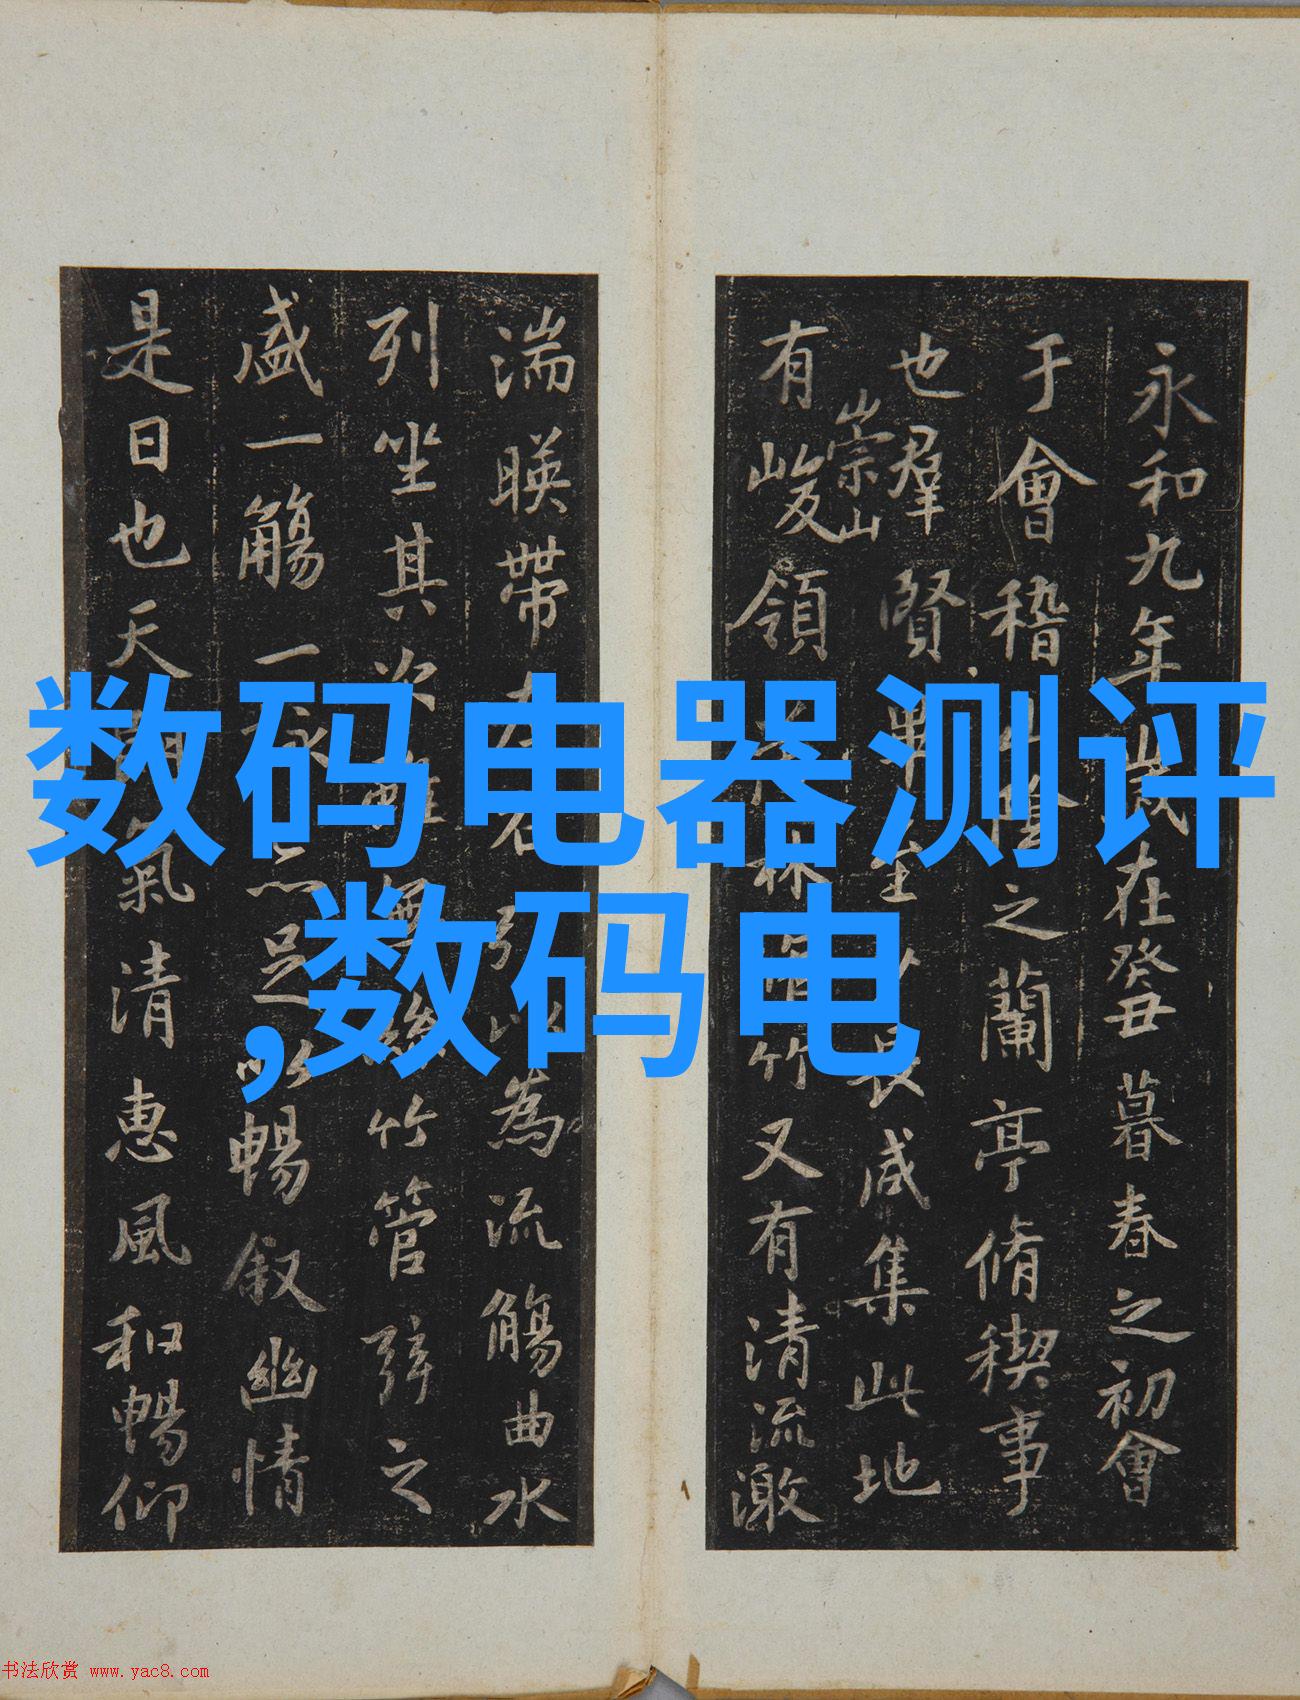 永和九年歲在癸丑暮春之初會
于會稽山陰之蘭亭脩稧事
也羣賢畢至少長咸集此地
崇山
有峻領茂林脩竹又有清流激
湍暎帶左右引以為流觴曲水
列坐其次雖無絲竹管弦之
盛一觴一詠亦足以暢叙幽情
是日也天朗氣清惠風和暢仰
数码电器测评
,数码电
书法欣赏 www.yac8.com